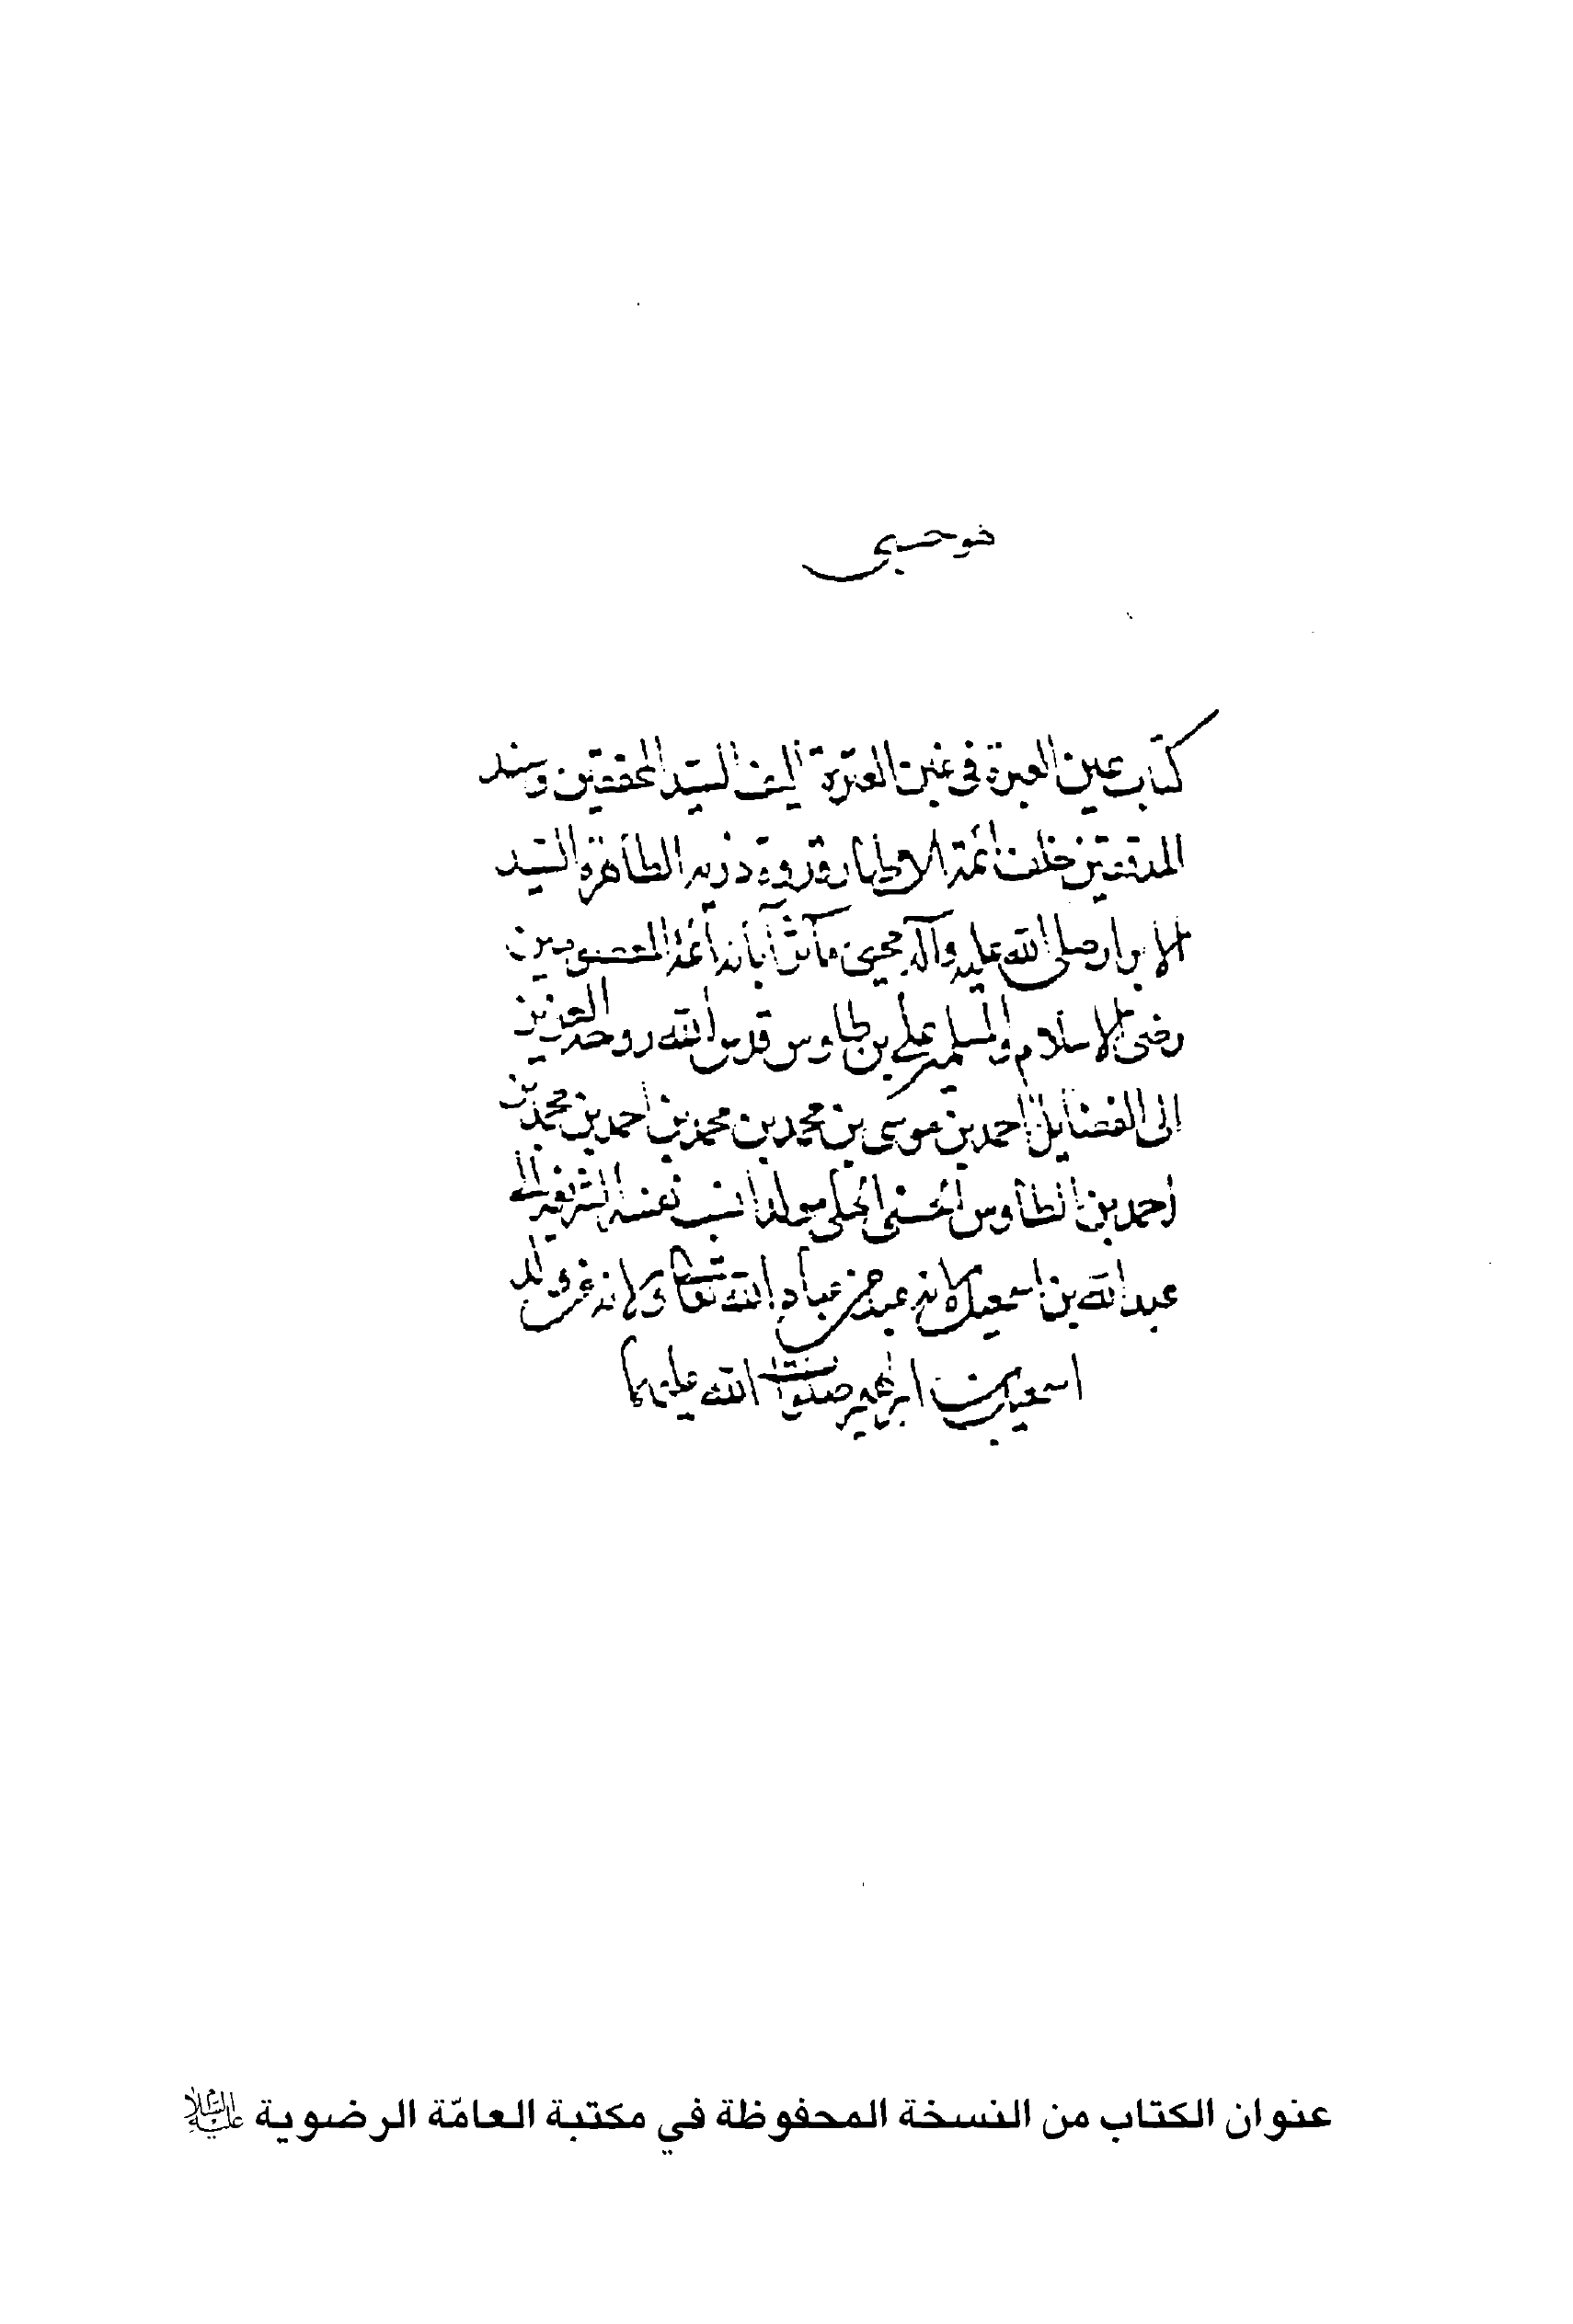 هو حسبي
كتاب عين العبرة في غبن العترة تاليف السيد المحققين وسند
المدققين خلف ائمة الاطهار وقدوة ذريه الطاهرة السيد
الابرار صلى الله عليه وآله محيى مآثر آبائه ائمة المعصومين
رضى الاسلام والمسلمين علي بن طاوس قدس الله روحه العزيز
ابى الفضايل احمد بن موسى بن محمد بن محمد بن احمد بن محمد بن
احمد بن الطاوس الحسنى الحلى مولدا نسب نفسه الشريفة الى
عبدالله بن اسمعيل لانه عبد من عباد الله تعالى ولانه من ولد
اسمعيل بن ابرهيم صلوات الله عليهما
عنوان الكتاب من النسخة المحفوظة في مكتبة العامّة الرضوية عليه السلام